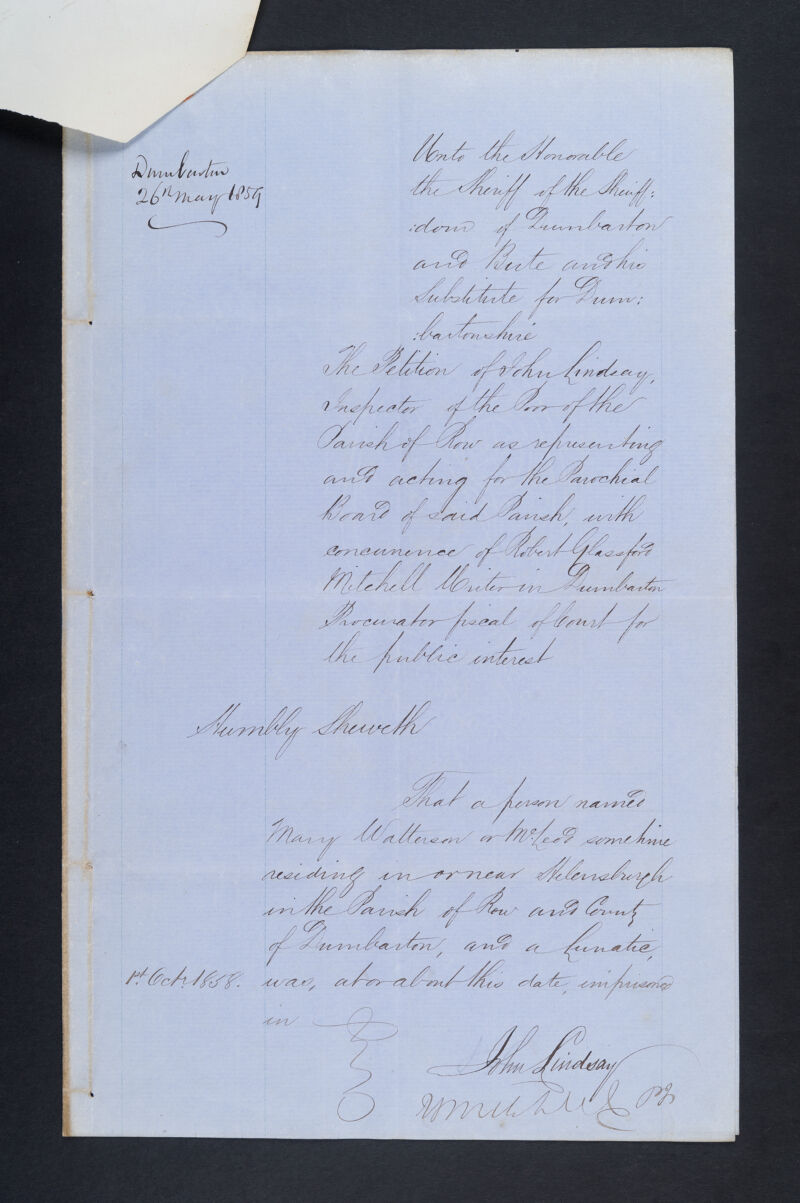 Dumbarton
26th May 1859
Unto the Honorable
the Sheriff of the Sheriff:
:dom of Dumbarton
and Bute and his
Substitute for Dum:
:bartonshire
The Petition of John Lindsay,
Inspector of the Poor of the
Parish of Row as representing
and acting for the Parochial
Board of said Parish, with
concurrence of Robert Glassford
Mitchell Writer in Dumbarton
Procurator fiscal of Court for
the public interest
Humbly Sheweth
That a person named
Mary Watterson or McLeod sometime
residing in or near Helensburgh
in the Parish of Row and County
of Dumbarton, and a Lunatic,
1st Octr. 1858. was, at or about this date, imprisoned
in
John Lindsay
PF